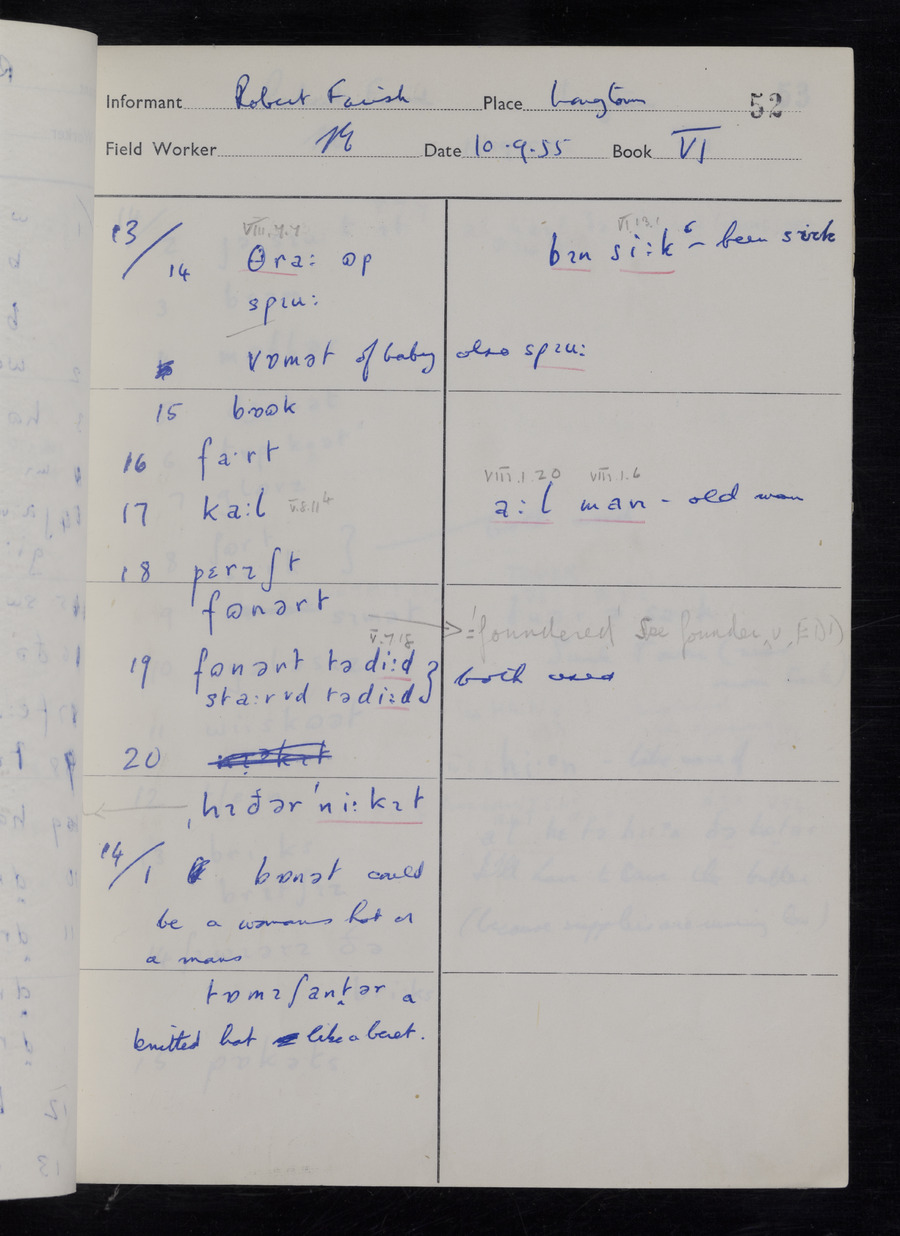 Informant Robert Farish Place Longtown 52
Field Worker Date 10.9.55 Book VI
13/ VIII.7.7 VI.13.1
14 θra: ɷp bɪn si:k - been sick
spɪu:
vɒmət of baby also spɪu:
15 bɷɷk
16 fa·rt
VIII.1.20 VIII.1.6
17 ka:l V.8.11 a:l man - old man
18 pɛrɪʃt
fɷnərt = 'foundered' See founder, v, EDD
V.7.18
19 fɷnərt tə di:d } both used
sta:rvd tədi:d
20
ˌhɪðər ˈni:kɪt
14/1 bɷnət could
be a womans hat or
a mans
tɒmɪʃantər a
knitted hat like a beret.